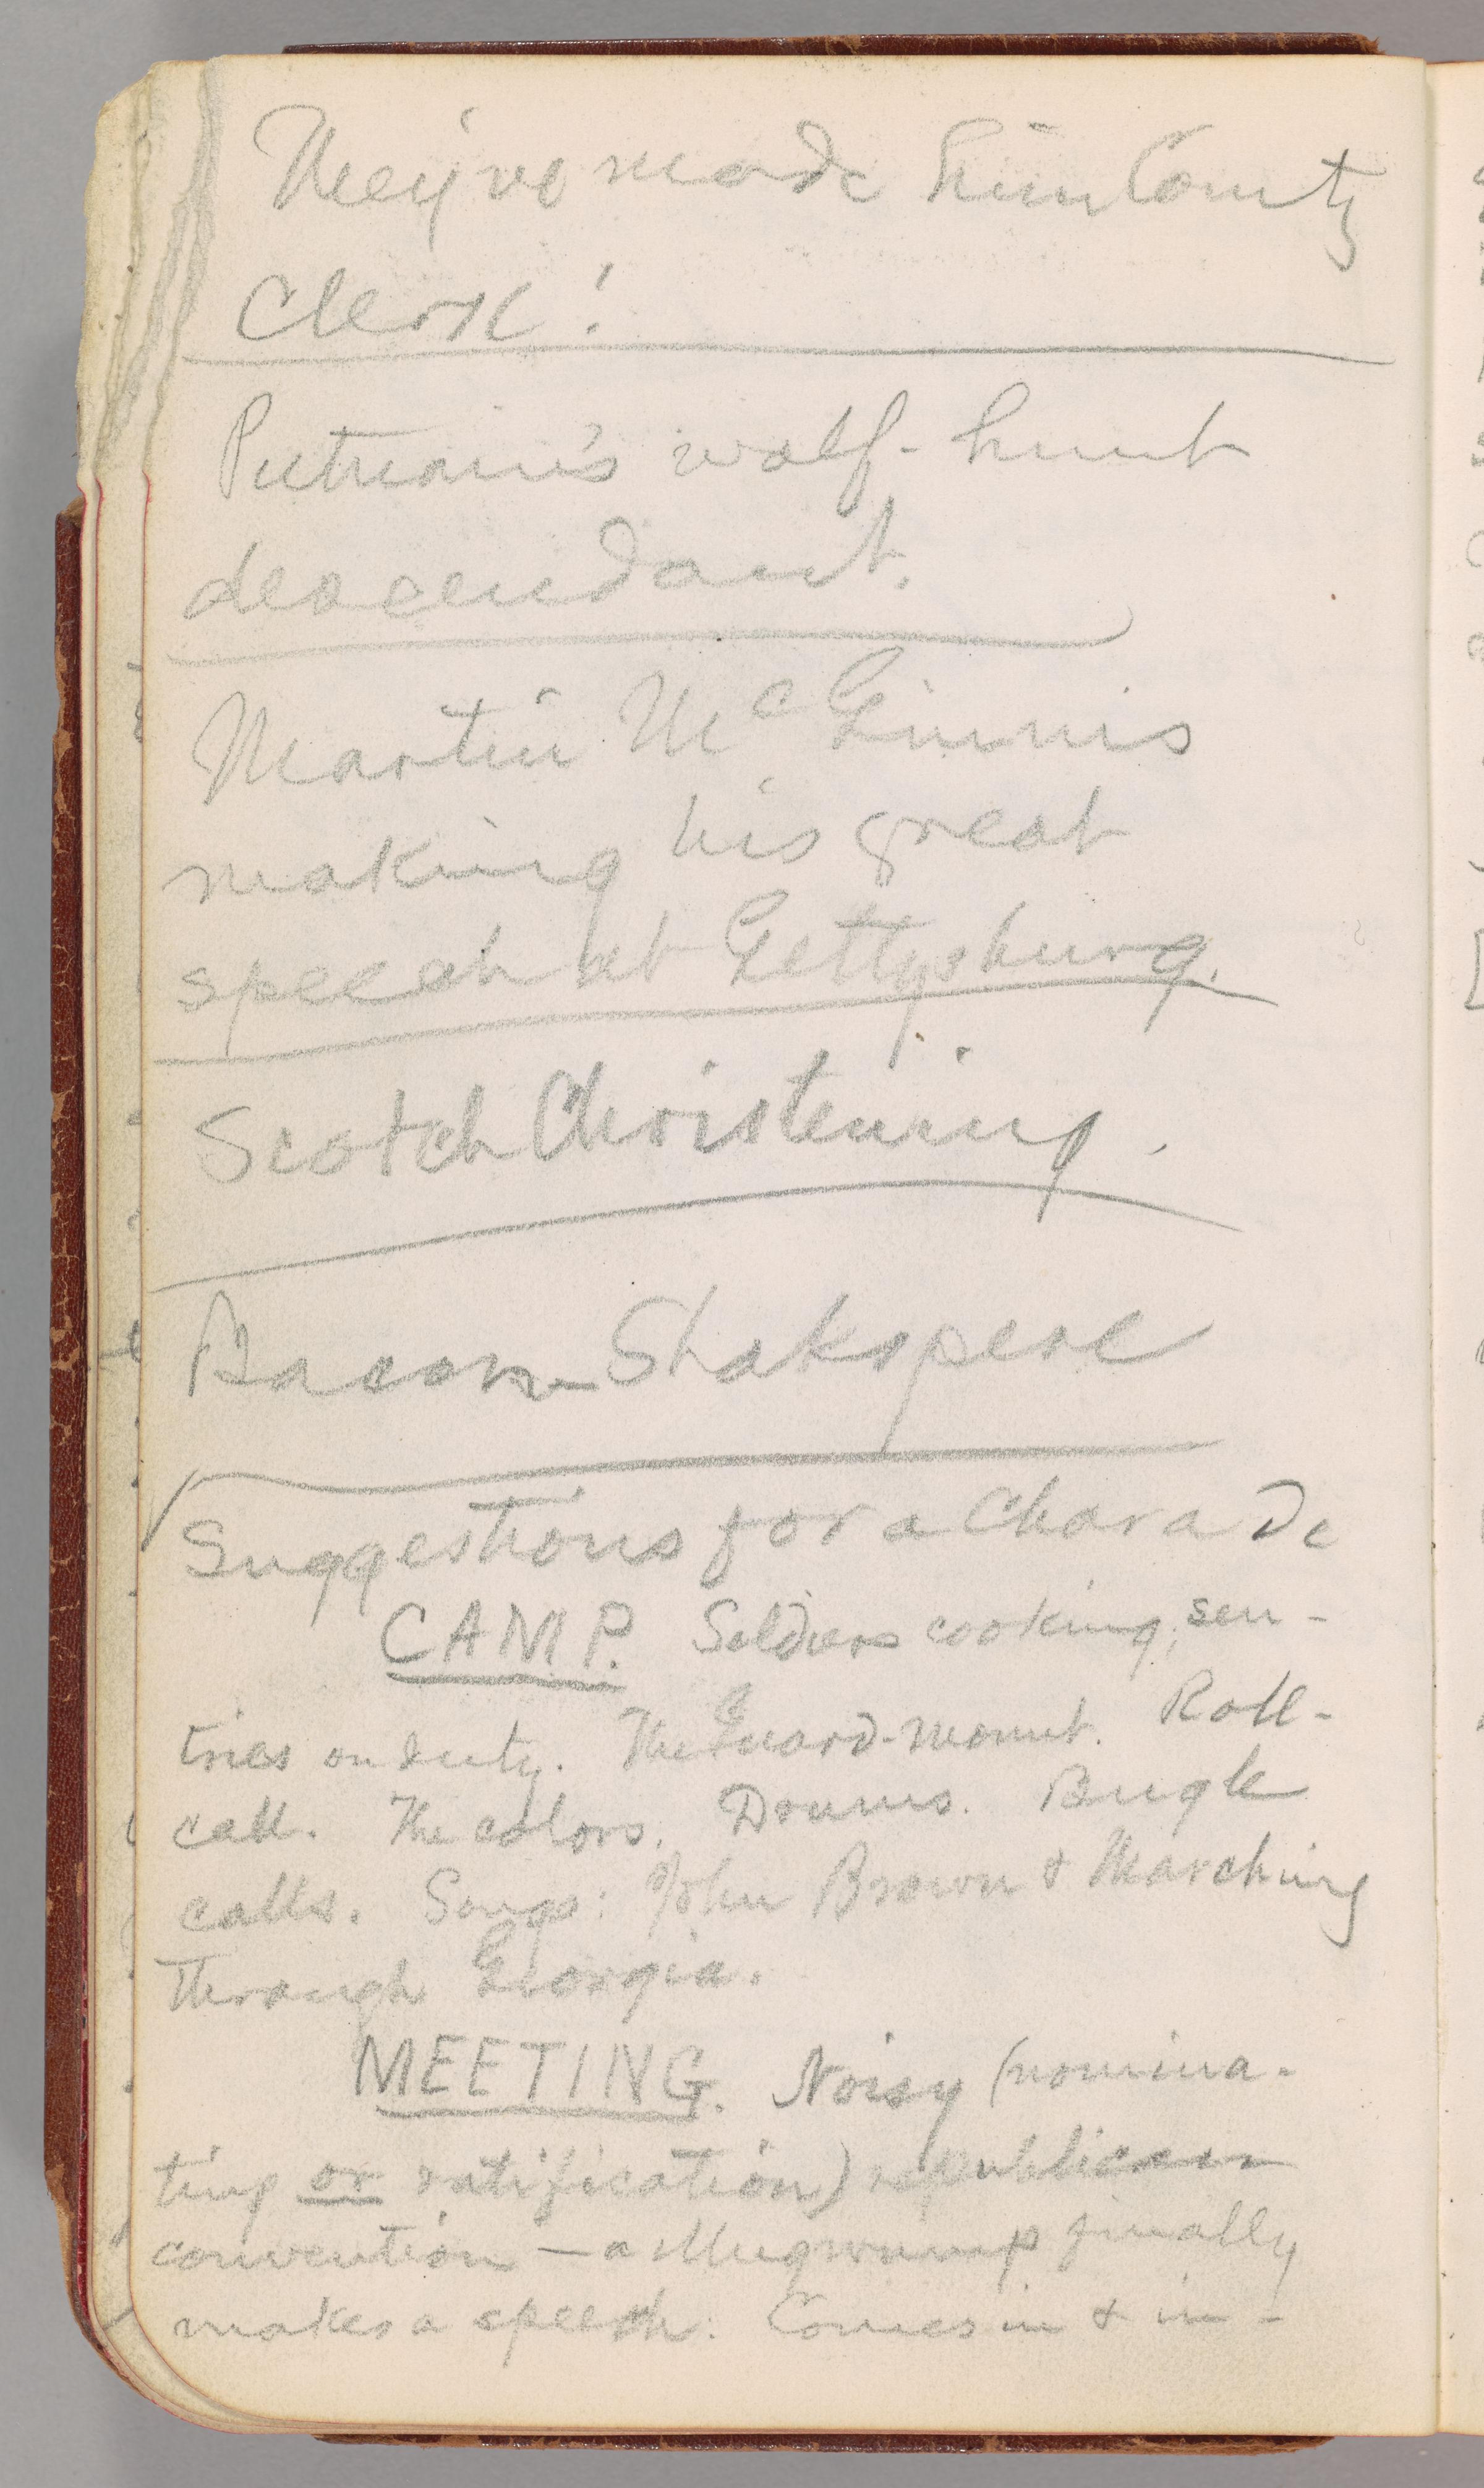 They've made him County
Clerk!
Putnam's wolf-hunt
descendant.
Martin McGinnis
making his great
speech at Gettysburg.
Scotch Christening.
Bacon-Shakspere
Suggestions for a Charade
CAMP. Soldiers cooking; sen-
tries on duty. The Guard-mount. Roll-
call. The colors. Drums. Bugle
calls. Songs: John Brown & Marching
Through Georgia.
MEETING. Noisy (nomina-
ting or ratification) republican
convention — a Mugwump finally
makes a speech. Comes in & in-